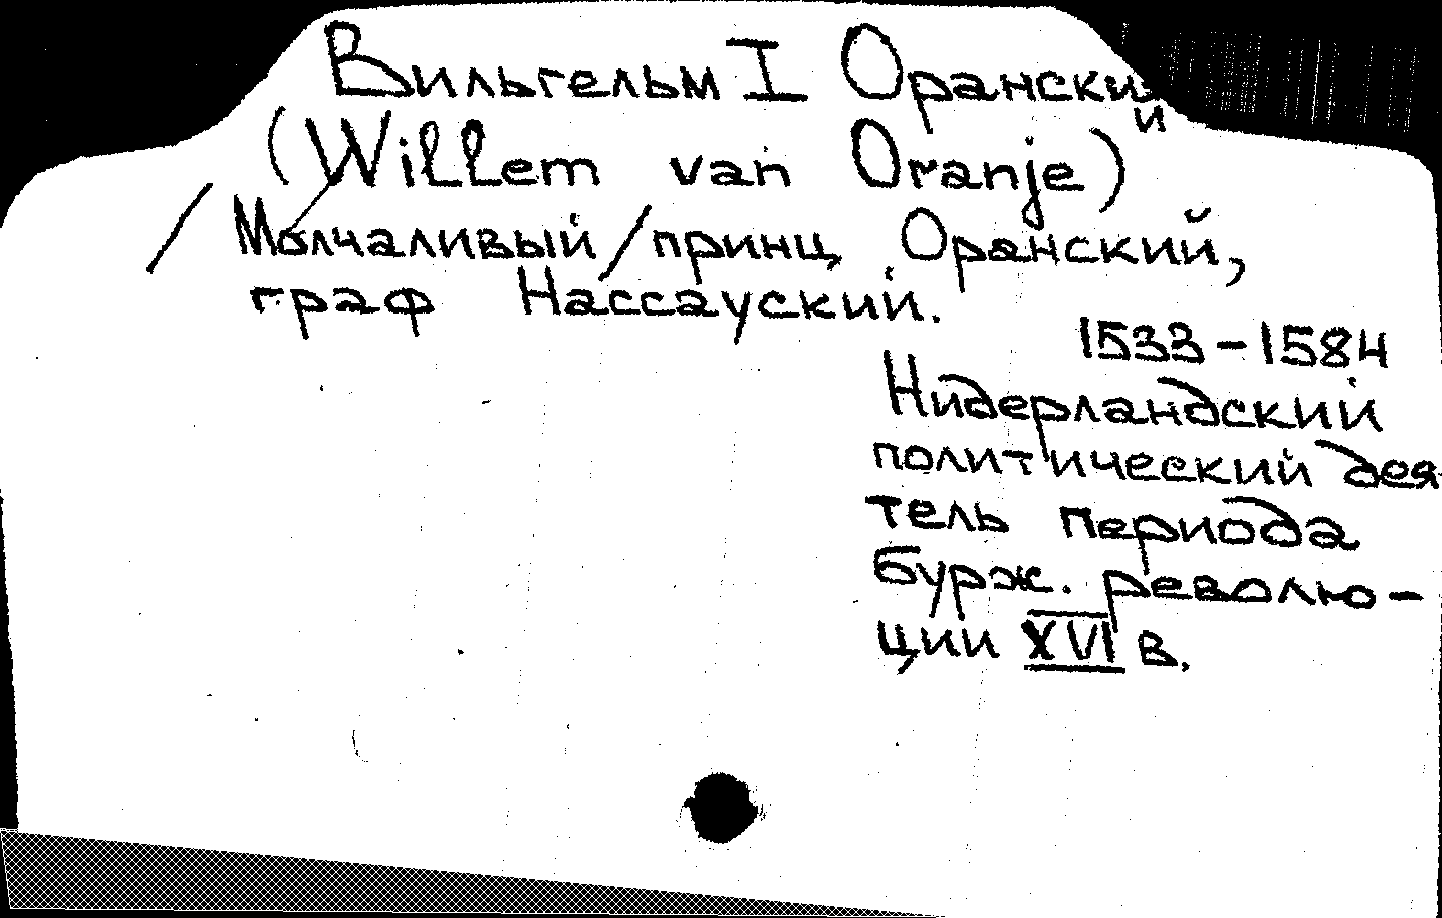 Вильгельм I Оранский
(Willem van Oranje)
/Молчаливый/принц Оранский,
граф Нассауский.
1533-1584
Нидерландский
политический дея
тель периода
бурж. револю-
ции XVI в.